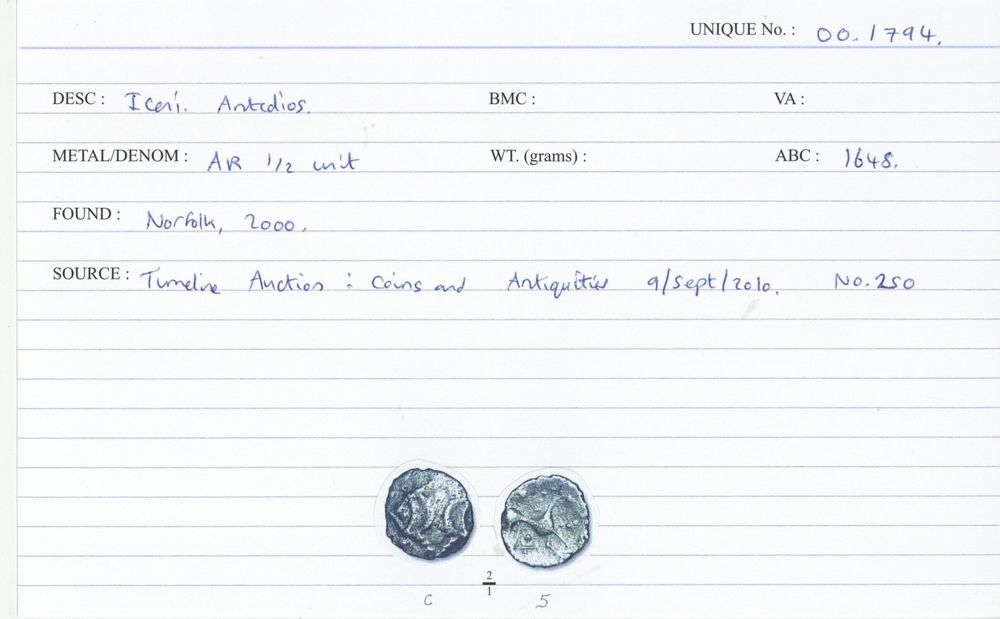 UNIQUE No. : 00.1794.
DESC : Iceni. Antedios. BMC : VA :
METAL/DENOM : AR 1/2 unit WT. (grams) : ABC : 1648.
FOUND : Norfolk, 2000.
SOURCE : Timeline Auction : Coins and Antiquities 9/Sept/2010. No.250
2
1
C 5